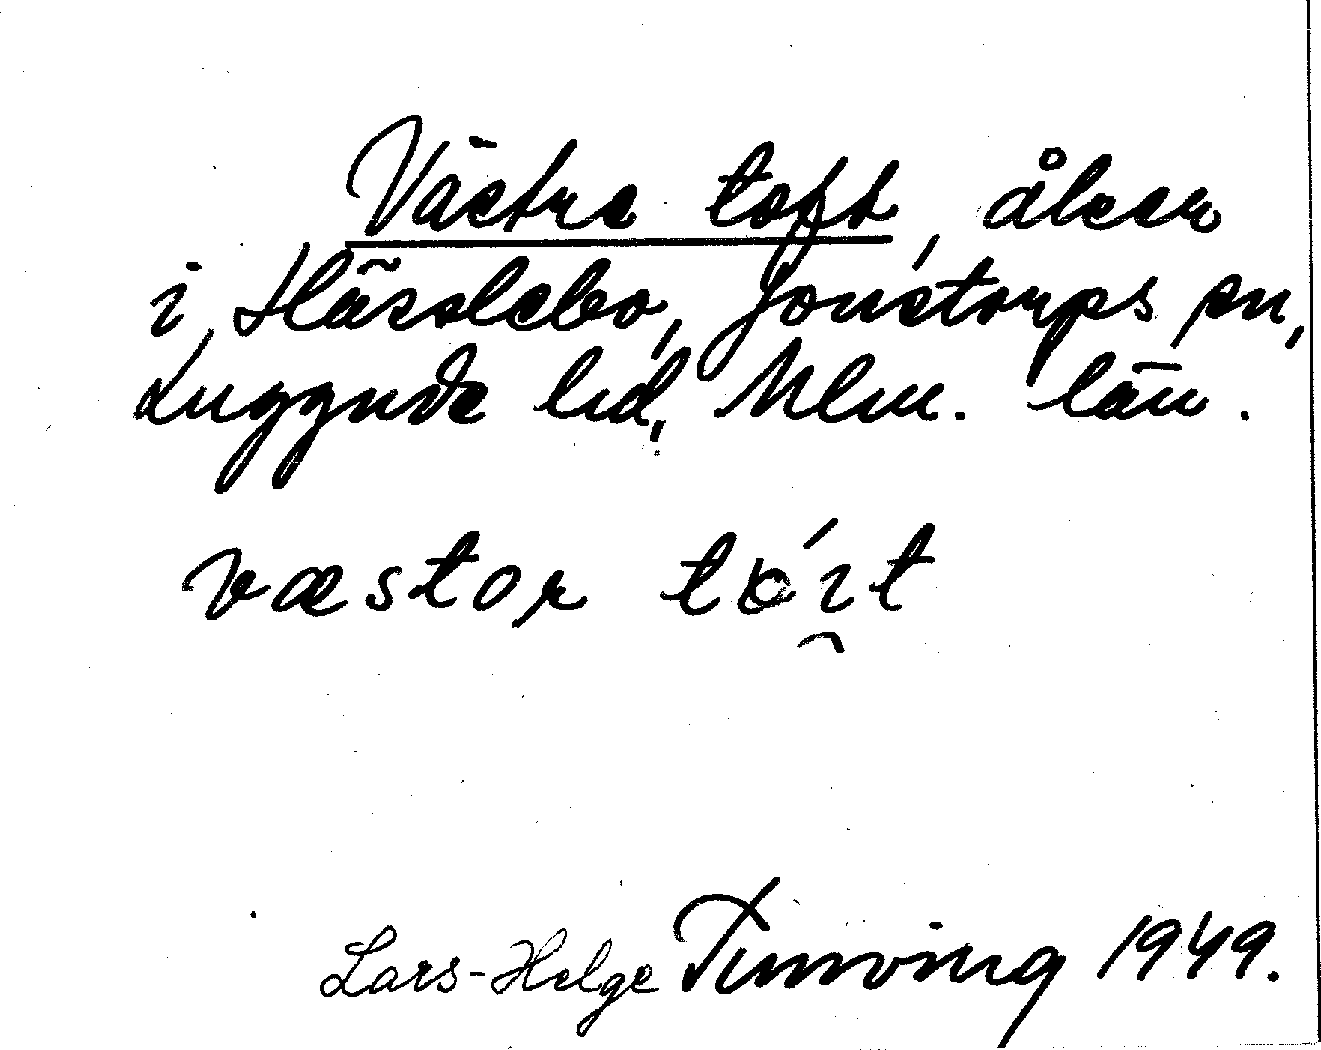 Västra toft, åker
i Hässlebo, Jonstorps sn,
Luggude hd, Mlm. län.
væstor tóft
Lars-Helge Tunving 1949.